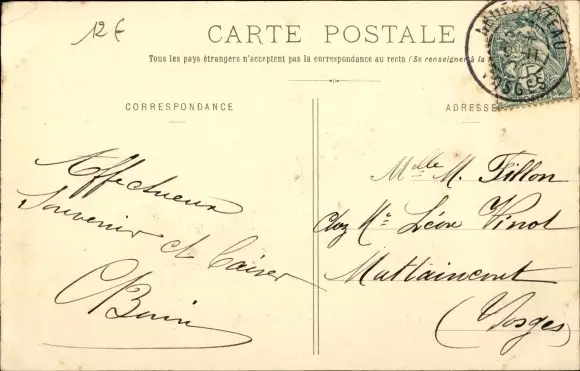 12 €
CARTE POSTALE
Tous les pays étrangers n'acceptent pas la correspondance au recto (Se renseigner à la
CORRESPONDANCE
ADRESSE
Affectueux
Souvenir et baiser
Mlle M. Fillon
Chez Mr Léon Vinot
Mattaincourt
(Vosges)
VOSGES